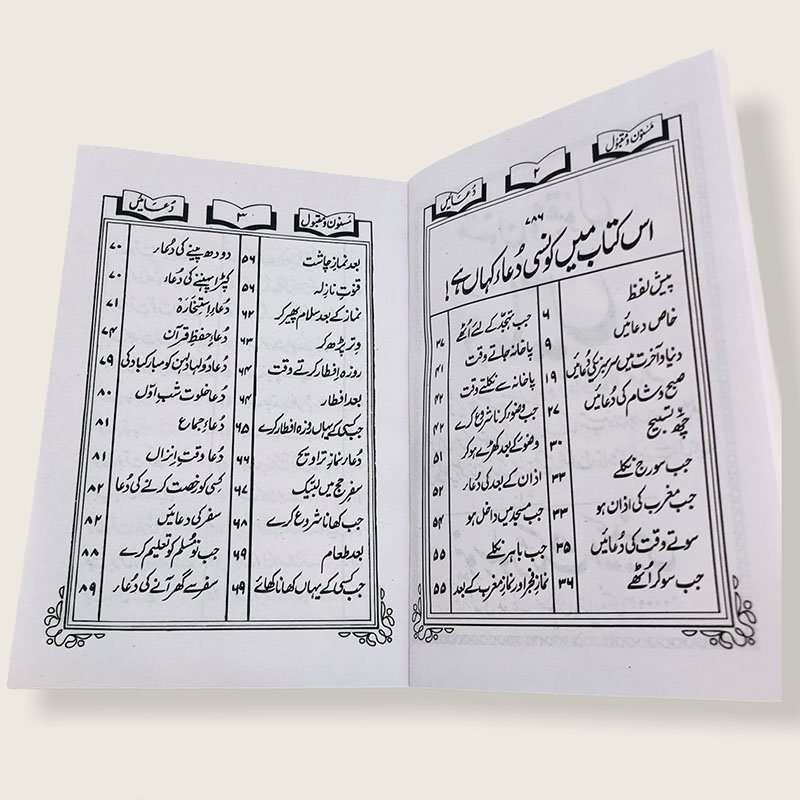 مسنون و مقبول ۲ دُعائیں
۷۸۶
اس کتاب میں کونسی دُعاء کہاں ہے!
پیش لفظ ۶
خاص دعائیں ۹
دنیا و آخرت میں سرسبزی کی دُعائیں ۱۹
صبح و شام کی دُعائیں ۲۷
چھ تسبیح ۳۰
جب سورج نکلے ۳۳
جب مغرب کی اذان ہو ۳۳
سوتے وقت کی دُعائیں ۳۵
جب سو کر اُٹھے ۳۶
جب تہجد کے لئے اُٹھے ۳۷
پاخانہ جاتے وقت ۴۱
پاخانہ سے نکلتے وقت ۴۲
جب وضو کرنا شروع کرے ۴۲
وضو کے بعد کھڑے ہو کر ۵۱
اذان کے بعد کی دُعاء ۵۲
جب مسجد میں داخل ہو ۵۴
جب باہر نکلے ۵۵
نمازِ فجر اور نماز مغرب کے بعد ۵۵
مسنون و مقبول ۳ دُعائیں
بعد نماز چاشت ۵۶
قنوتِ نازلہ ۵۶
نماز کے بعد سلام پھیر کر ۶۲
وتر پڑھ کر ۶۳
روزہ افطار کرتے وقت ۶۴
بعد افطار ۶۴
جب کسی کے یہاں روزہ افطار کرے ۶۵
دُعاء نمازِ تراویح ۶۶
سفرِ حج میں لبیک ۶۷
جب کھانا شروع کرے ۶۸
بعد طعام ۶۹
جب کسی کے یہاں کھانا کھائے ۶۹
دودھ پینے کی دُعاء ۷۰
کپڑا پہننے کی دُعاء ۷۰
دُعاءِ اِستخارَہ ۷۱
دُعاءِ حفظِ قرآن ۷۴
دُعاء دولہا دلہن کو مبارکبادی کی ۷۹
دُعاء خلوت شبِ اوّل ۸۰
دُعاءِ جماع ۸۱
دُعا وقتِ اِنزال ۸۱
کِسی کو رخصت کرنے کی دُعا ۸۲
سفر کی دعائیں ۸۲
جب نو مُسلم کو تعلیم کرے ۸۸
سفر سے گھر آنے کی دُعاء ۸۹